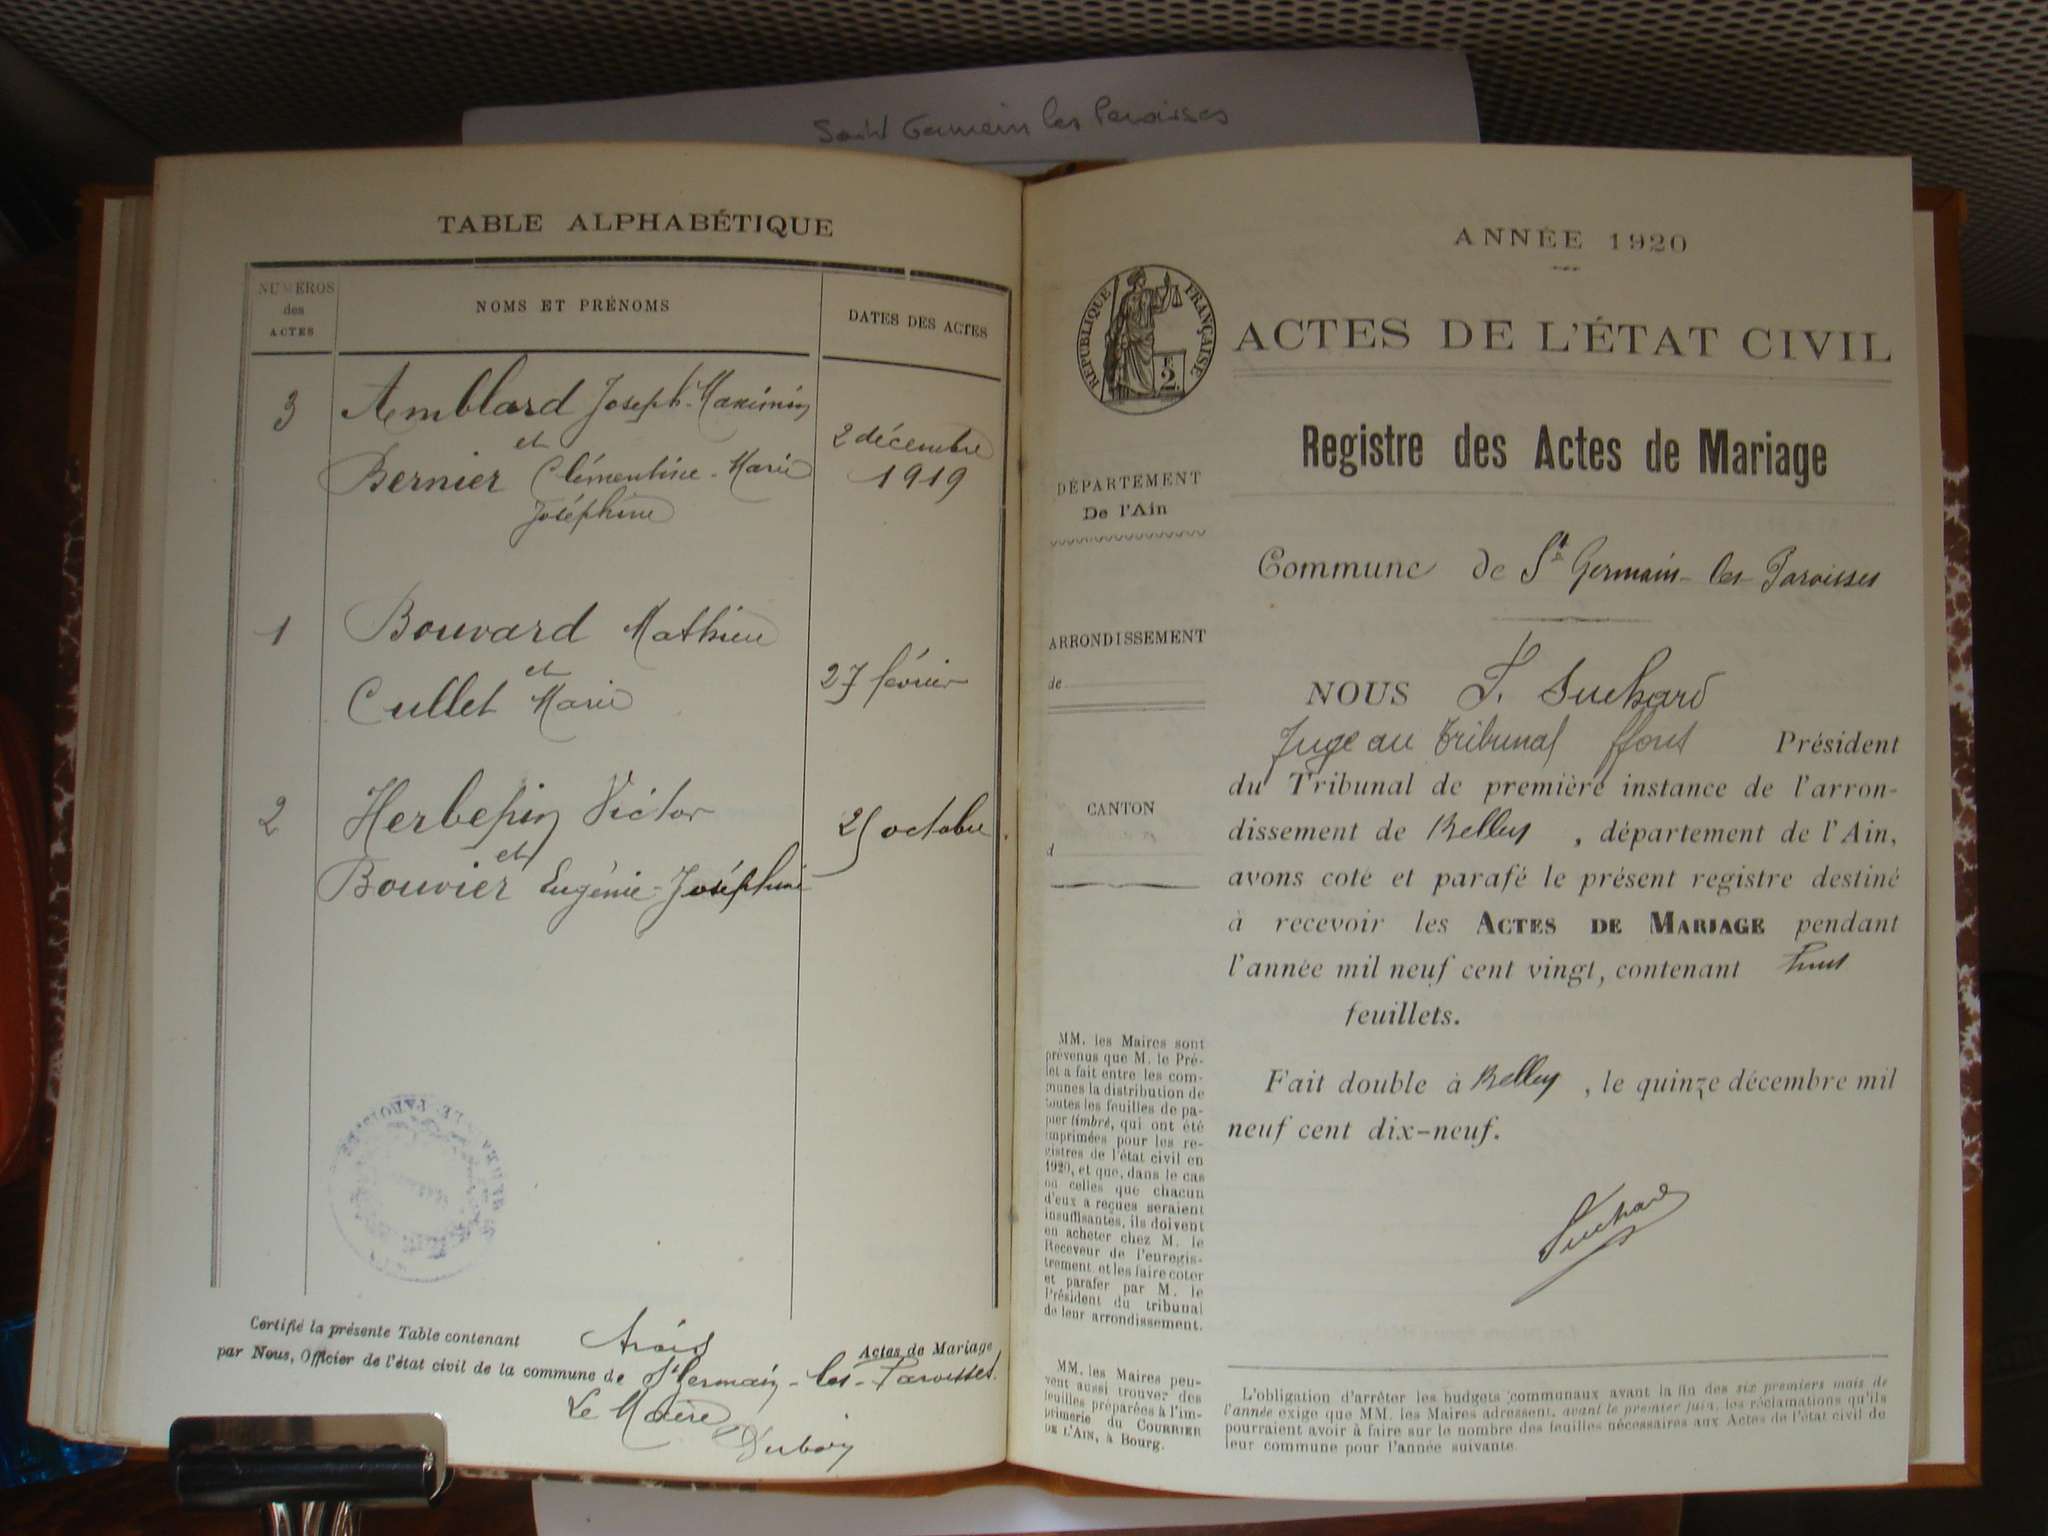 Saint Germain les Paroisses
TABLE ALPHABÉTIQUE
NUMEROS
des
ACTES
NOMS ET PRÉNOMS
DATES DES ACTES
3
Amblard Joseph-Maximin
et
Bernier Clémentine-Marie
Joséphine
2 décembre
1919
1
Bouvard Mathieu
et
Cullet Marie
27 février
2
Herbepin Victor
et
Bouvier Eugénie-Joséphine
25 octobre
Certifié la présente Table contenant trois Actes de Mariage
par Nous, Officier de l'état civil de la commune de St Germain-les-Paroisses.
Le Maire
ANNÉE 1920
RÉPUBLIQUE FRANÇAISE
2
ACTES DE L'ÉTAT CIVIL
Registre des Actes de Mariage
DÉPARTEMENT
De l'Ain
Commune de St Germain-les-Paroisses
ARRONDISSEMENT
de
CANTON
d
NOUS F. Suchard
Juge au Tribunal ffons Président
du Tribunal de première instance de l'arron-
dissement de Belley, département de l'Ain,
avons coté et parafé le présent registre destiné
à recevoir les ACTES DE MARIAGE pendant
l'année mil neuf cent vingt, contenant
feuillets.
Fait double à Belley, le quinze décembre mil
neuf cent dix-neuf.
Suchard
MM. les Maires sont
prévenus que M. le Pré-
fet a fait entre les com-
munes la distribution de
toutes les feuilles de pa-
pier timbré, qui ont été
imprimées pour les re-
gistres de l'état civil en
1920, et que, dans le cas
où celles que chacun
d'eux a reçues seraient
insuffisantes, ils doivent
en acheter chez M. le
Receveur de l'enregis-
trement et les faire coter
et parafer par M. le
Président du tribunal
de leur arrondissement.
MM. les Maires peu-
vent aussi trouver des
feuilles préparées à l'im-
primerie du COURRIER
DE L'AIN, à Bourg.
L'obligation d'arrêter les budgets communaux avant la fin des six premiers mois de
l'année exige que MM. les Maires adressent, avant le premier juin, les réclamations qu'ils
pourraient avoir à faire sur le nombre des feuilles nécessaires aux Actes de l'état civil de
leur commune pour l'année suivante